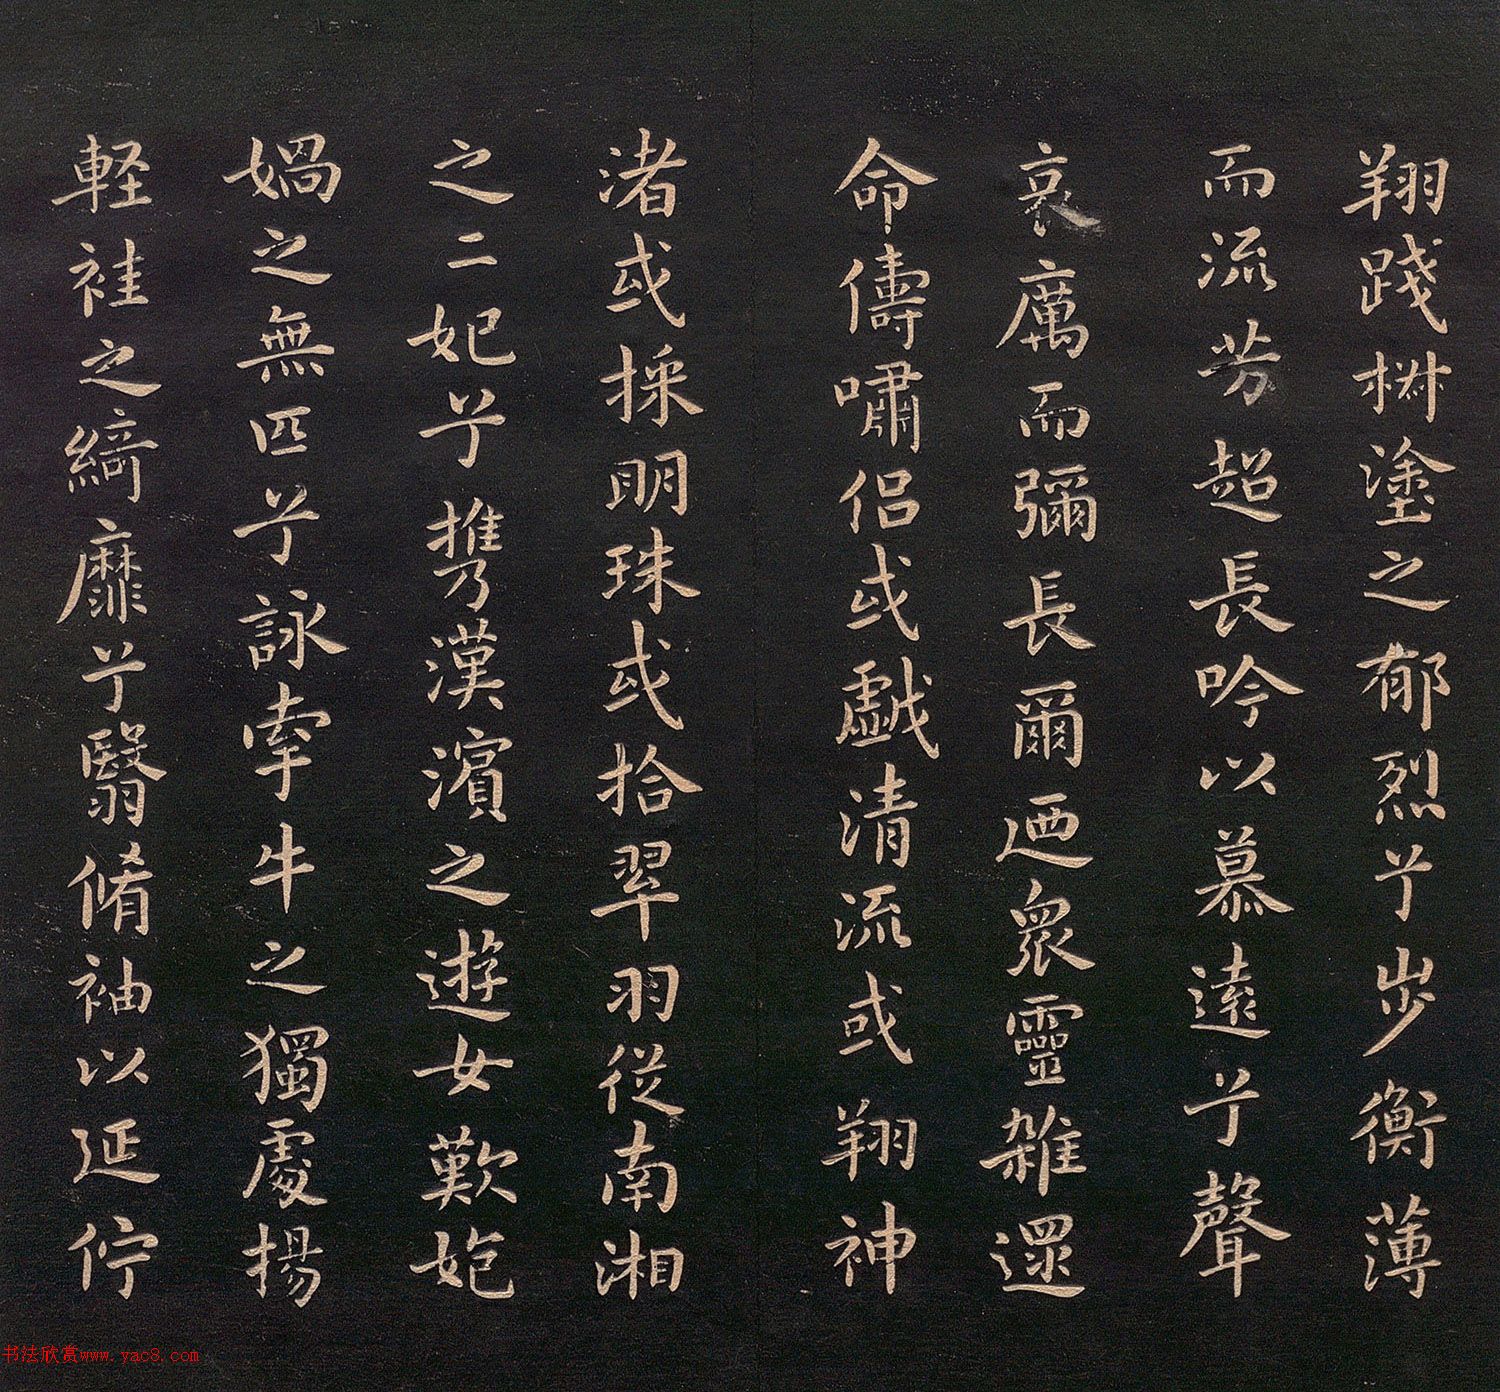 翔踐椒塗之郁烈兮步衡薄
而流芳超長吟以慕遠兮聲
哀厲而彌長爾迺衆靈雜遝
命儔嘯侶或戲清流或翔神
渚或採明珠或拾翠羽從南湘
之二妃兮攜漢濱之遊女歎匏
媧之無匹兮詠牽牛之獨處揚
軽袿之綺靡兮翳脩袖以延佇
书法欣赏www.yac8.com